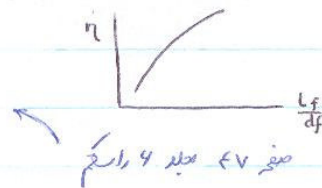 η
Lf/df
صفحه ۴۷ جلد ۶ راسکم